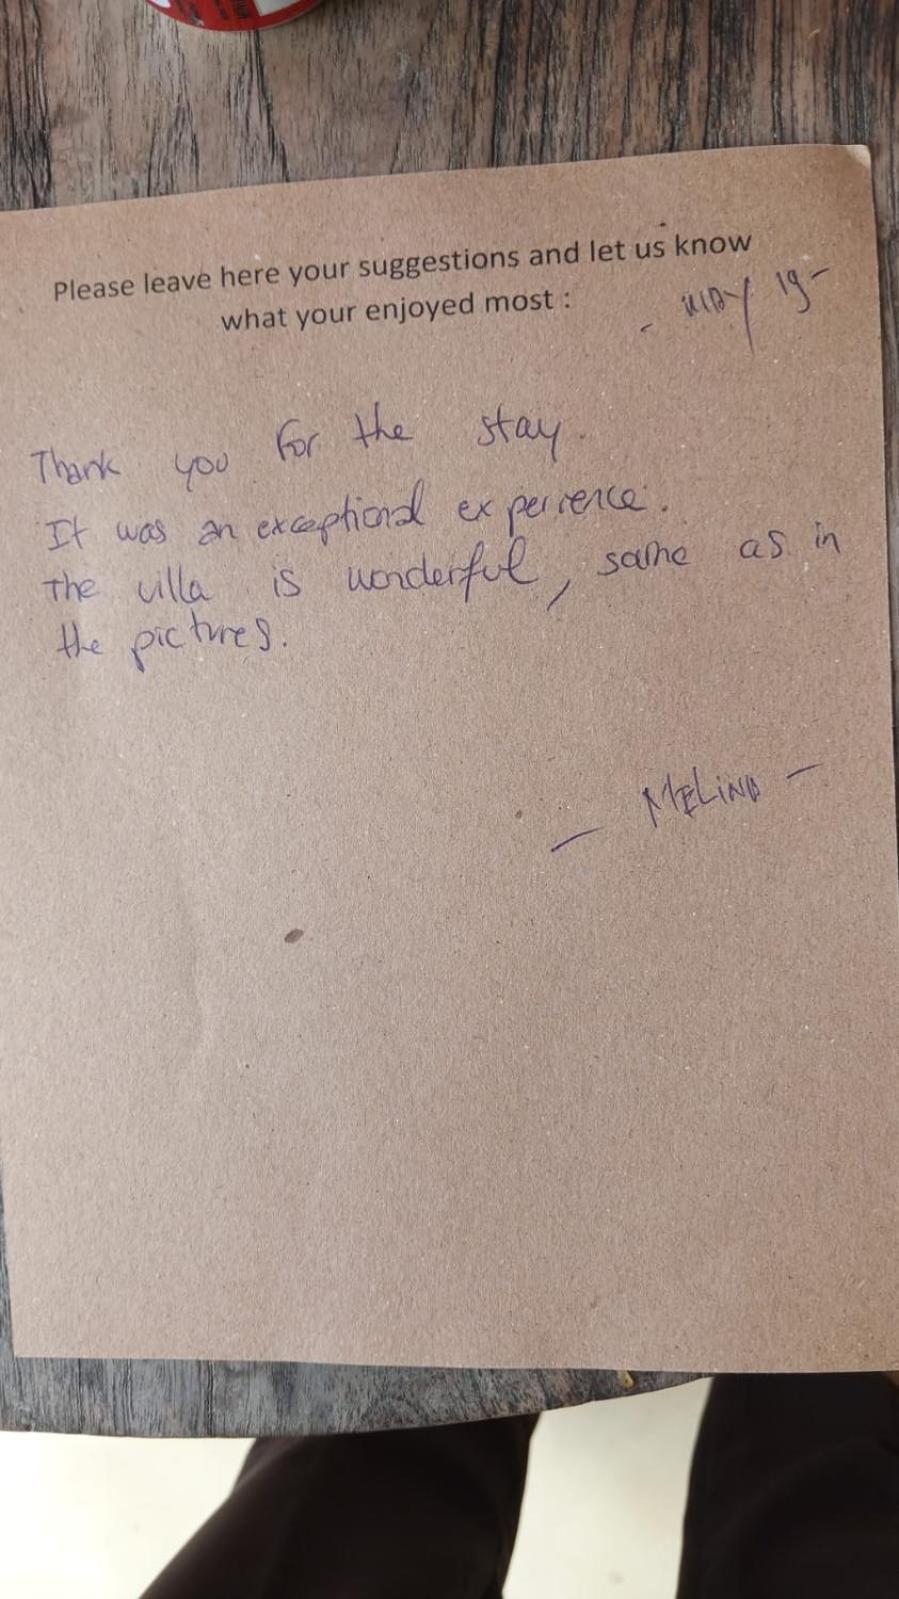 Please leave here your suggestions and let us know
what your enjoyed most :
- MAY 19 -
Thank you for the stay.
It was an exceptional experience.
The villa is wonderful, same as in
the pictures.
- MELINA -